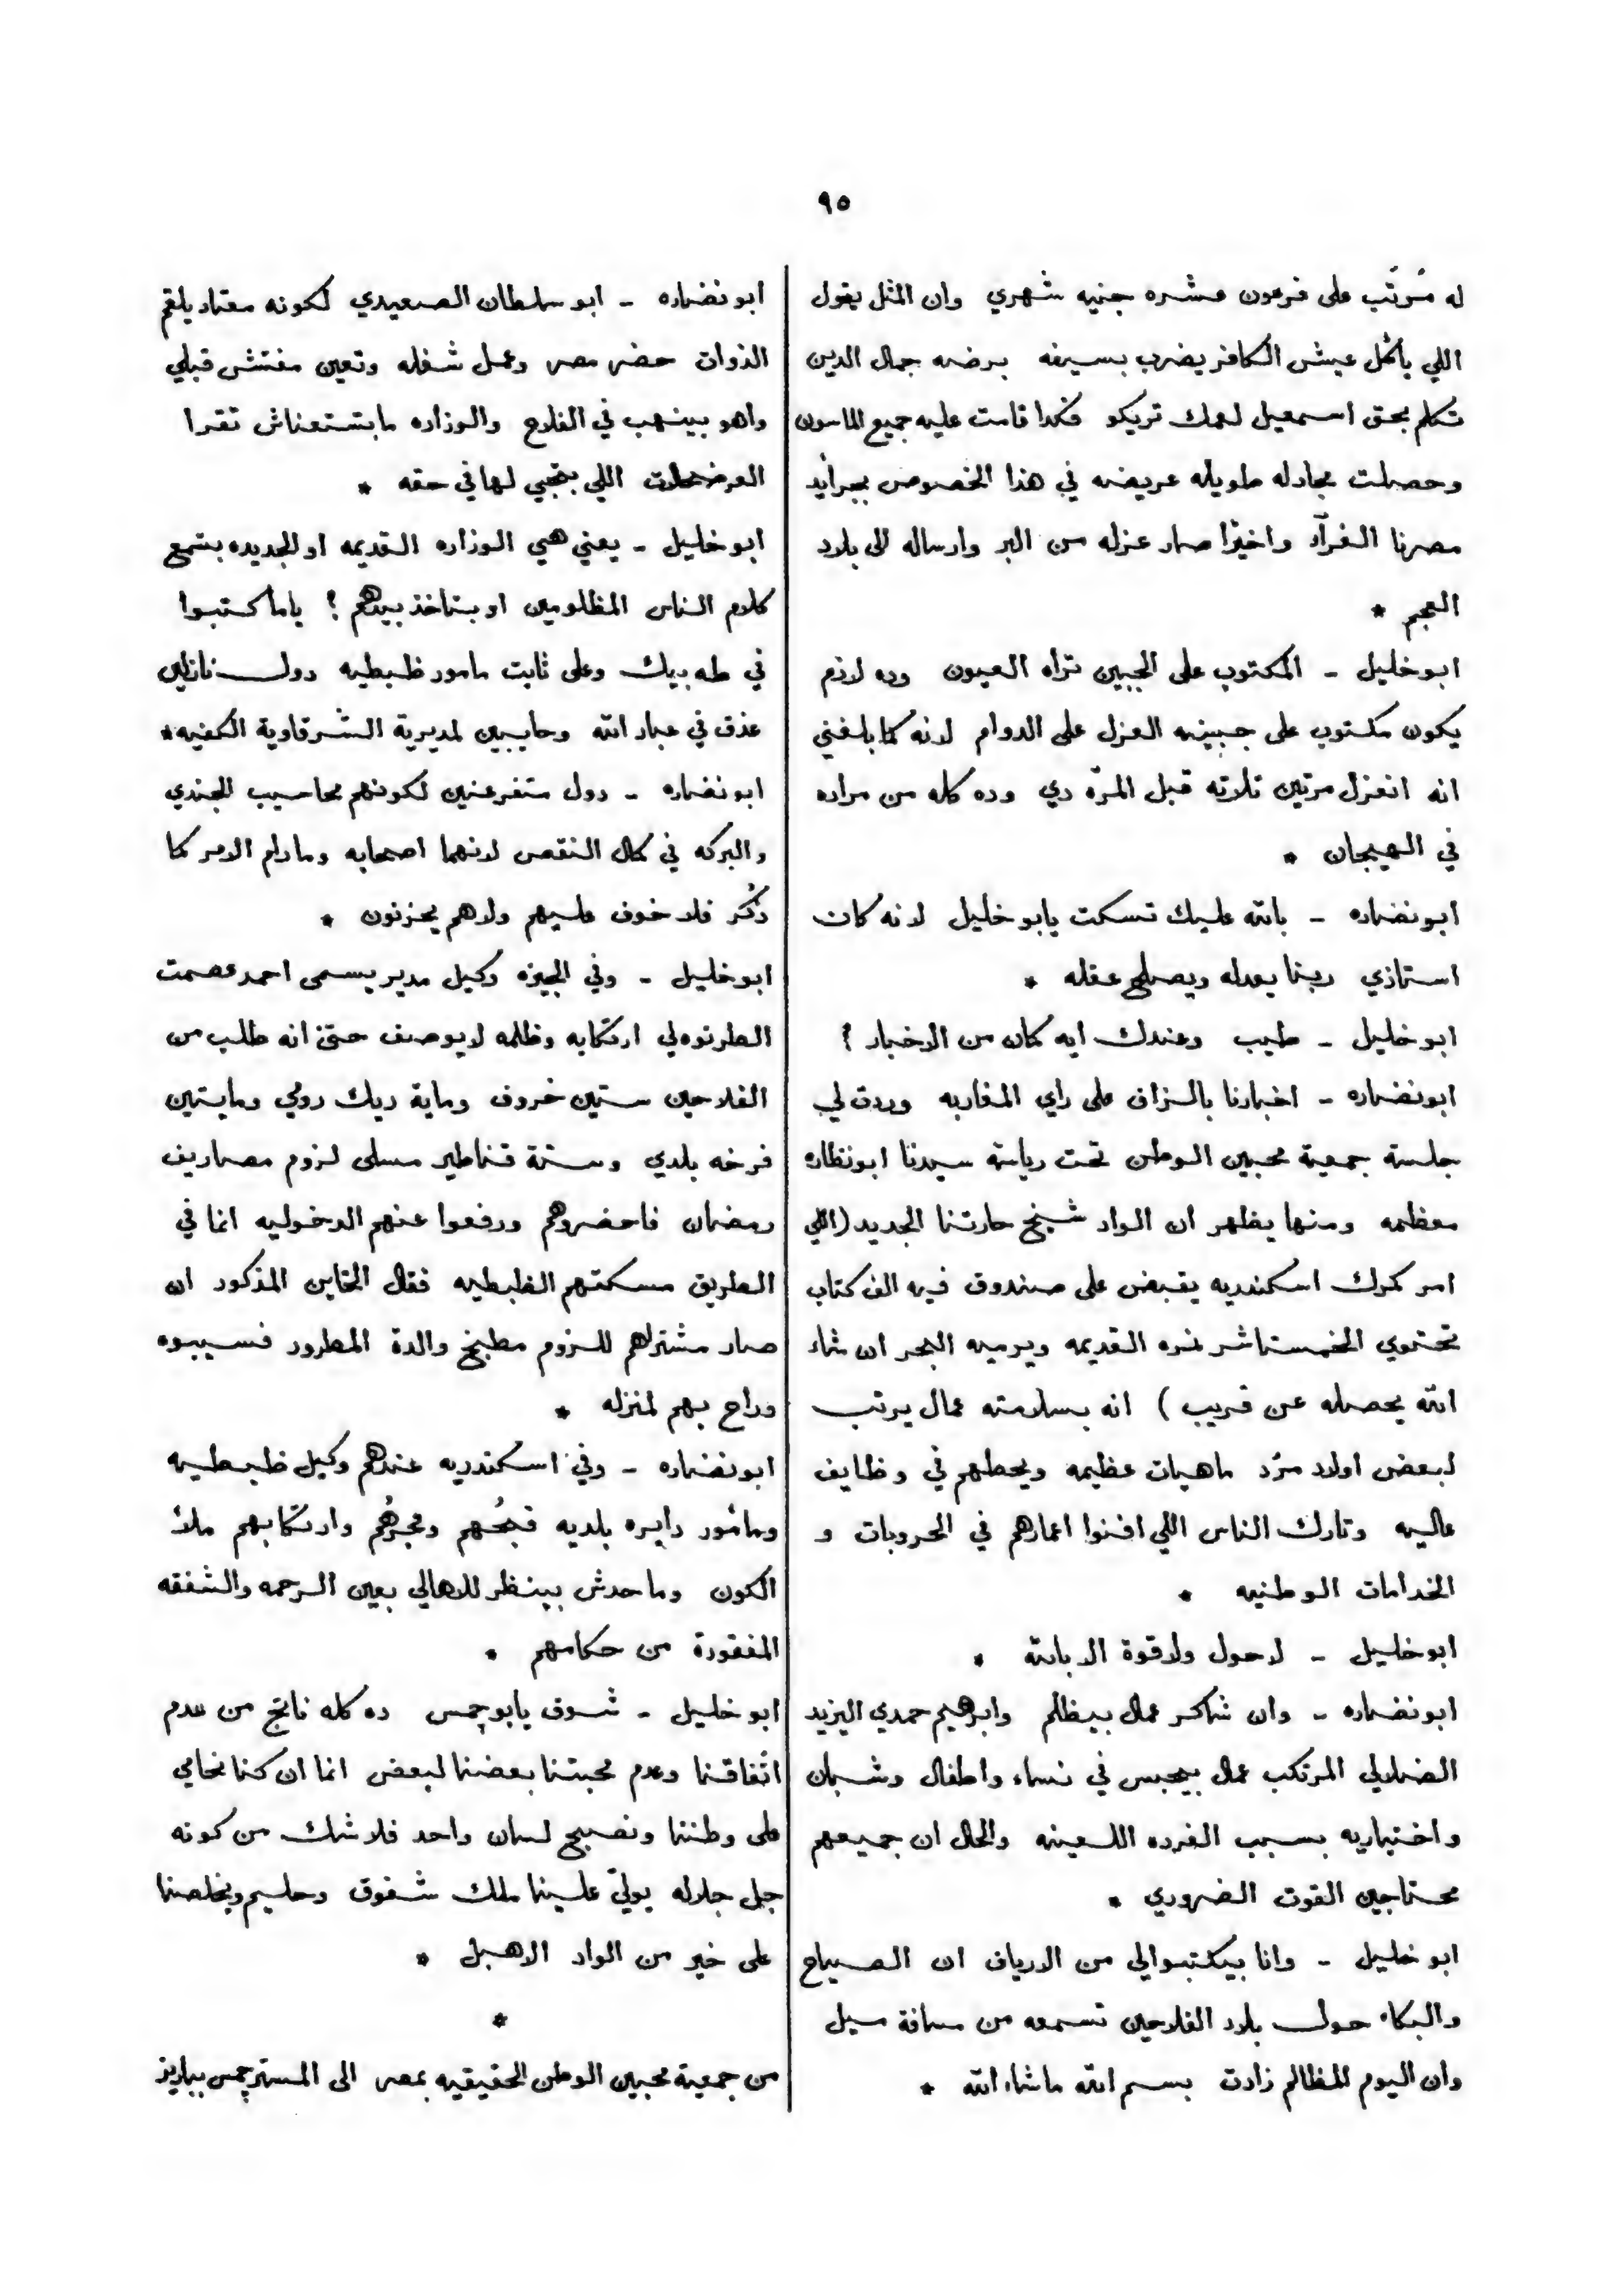 ٩٥
له مُرتّب على فرعون عشره جنيه شهري وان المثل يقول
اللي ياكل عيش الكافر يضرب بسيفه برضه جمال الدين
تكلم بحق اسمعيل لعمك تريكو فكدا قامت عليه جميع الماسون
وحصلت مجادله طويله عريضه في هذا الخصوص بجرايد
مصرنا الغرآء واخيرًا صار عزله من البر وارساله الى بلاد
العجم *
ابو خليل - المكتوب على الجبين تراه العيون وده لازم
يكون مكتوب على جبينه العزل على الدوام لانه كما بلغني
انه انعزل مرتين تلاته قبل المرّه دي وده كله من مراده
في الهيجان *
ابو نضاره - بالله عليك تسكت يابو خليل لانه كان
استاذي ربنا يعدله ويصلح عقله *
ابو خليل - طيب وعندك ايه كمان من الاخبار ؟
ابو نضاره - اخبارنا بالزاف على راي المغاربه وردت لي
جلسة جمعية محبين الوطن تحت رياسة سيدنا ابو نظاره
معظمه ومنها يظهر ان الواد شيخ حارتنا الجديد (اللي
امر كمرك اسكندريه يقبض على صندوق فيه الف كتاب
تحتوي الخمستاشر نمره القديمه ويرميه البحر ان شاء
الله يحصله عن قريب ) انه بسلامته عمال يرتب
لبعض اولاد مرّد ماهيات عظيمه ويحطهم في وظايف
عاليه وتارك الناس اللي افنوا اعمارهم في الحروبات و
الخدامات الوطنيه *
ابو خليل - لاحول ولاقوة الا بالله *
ابو نضاره - وان شاكر عمال بيظلم وابراهيم حمدي اليزيد
الضلالي المرتكب عمال بيحبس في نساء واطفال وشبان
واختياريه بسبب الفرده اللعينه والحال ان جميعهم
محتاجين القوت الضروري *
ابو خليل - وانا بيكتبوالي من الارياف ان الصياح
والبكاء حول بلاد الفلاحين تسمعه من مسافة ميل
وان اليوم المظالم زادت بسم الله ماشاء الله *
ابو نضاره - ابو سلطان الصعيدي لكونه معتاد يلقم
الذوات حضر مصر وعمل شغله وتعين مفتش قبلي
واهو بينهب في الفلاح والوزاره مابتستعناش تقرا
العرضحالات اللي بتجي لها في حقه *
ابو خليل - يعني هي الوزاره القديمه او الجديده بتسمع
كلام الناس المظلومين او بتاخذ بيدهم ؟ ياما كتبوا
في طه بيك وعلى ثابت مامور ظبطيه دول نازلين
عذق في عباد الله وحايبين لمديرية الشرقاوية الكفيه *
ابو نضاره - دول متفرعنين لكونهم محاسيب الجندي
والبركه في كمال النقص لانهما اصحابه ومادام الامر كما
ذُكر فلا خوف عليهم ولاهم يحزنون *
ابو خليل - وفي الجيزه وكيل مدير يسمى احمد عصمت
الطرنوه لي ارتكابه وظلمه لايوصف حتى انه طلب من
الفلاحين ستين خروف وماية ديك رومي ومايتين
فرخه بلدي وستة قناطير مسلى لزوم مصاريف
رمضان فاحضروهم ورفعوا عنهم الدخوليه انما في
الطريق مسكتهم الظبطيه فقال الخاين المذكور ان
صار مشتراهم للزوم مطبخ والدة المطرود فسيبوه
وراح بهم لمنزله *
ابو نضاره - وفي اسكندريه عندهم وكيل ظبطيه
ومأمور دايره بلديه قبحُهم وفجرُهم وارتكابهم ملأ
الكون وماحدش بينظر للاهالي بعين الرحمه والشفقه
المفقودة من حكامهم *
ابو خليل - شوف يابو جمس ده كله ناتج من عدم
اتفاقنا وعدم محبتنا بعضنا لبعض انما ان كنا نحامي
على وطننا ونصبح لسان واحد فلا شك من كونه
جل جلاله يولّي علينا ملك شفوق وحليم ويخلصنا
على خير من الواد الاهبل *
*
من جمعية محبين الوطن الحقيقيه بمصر الى المستر جمس بباريز